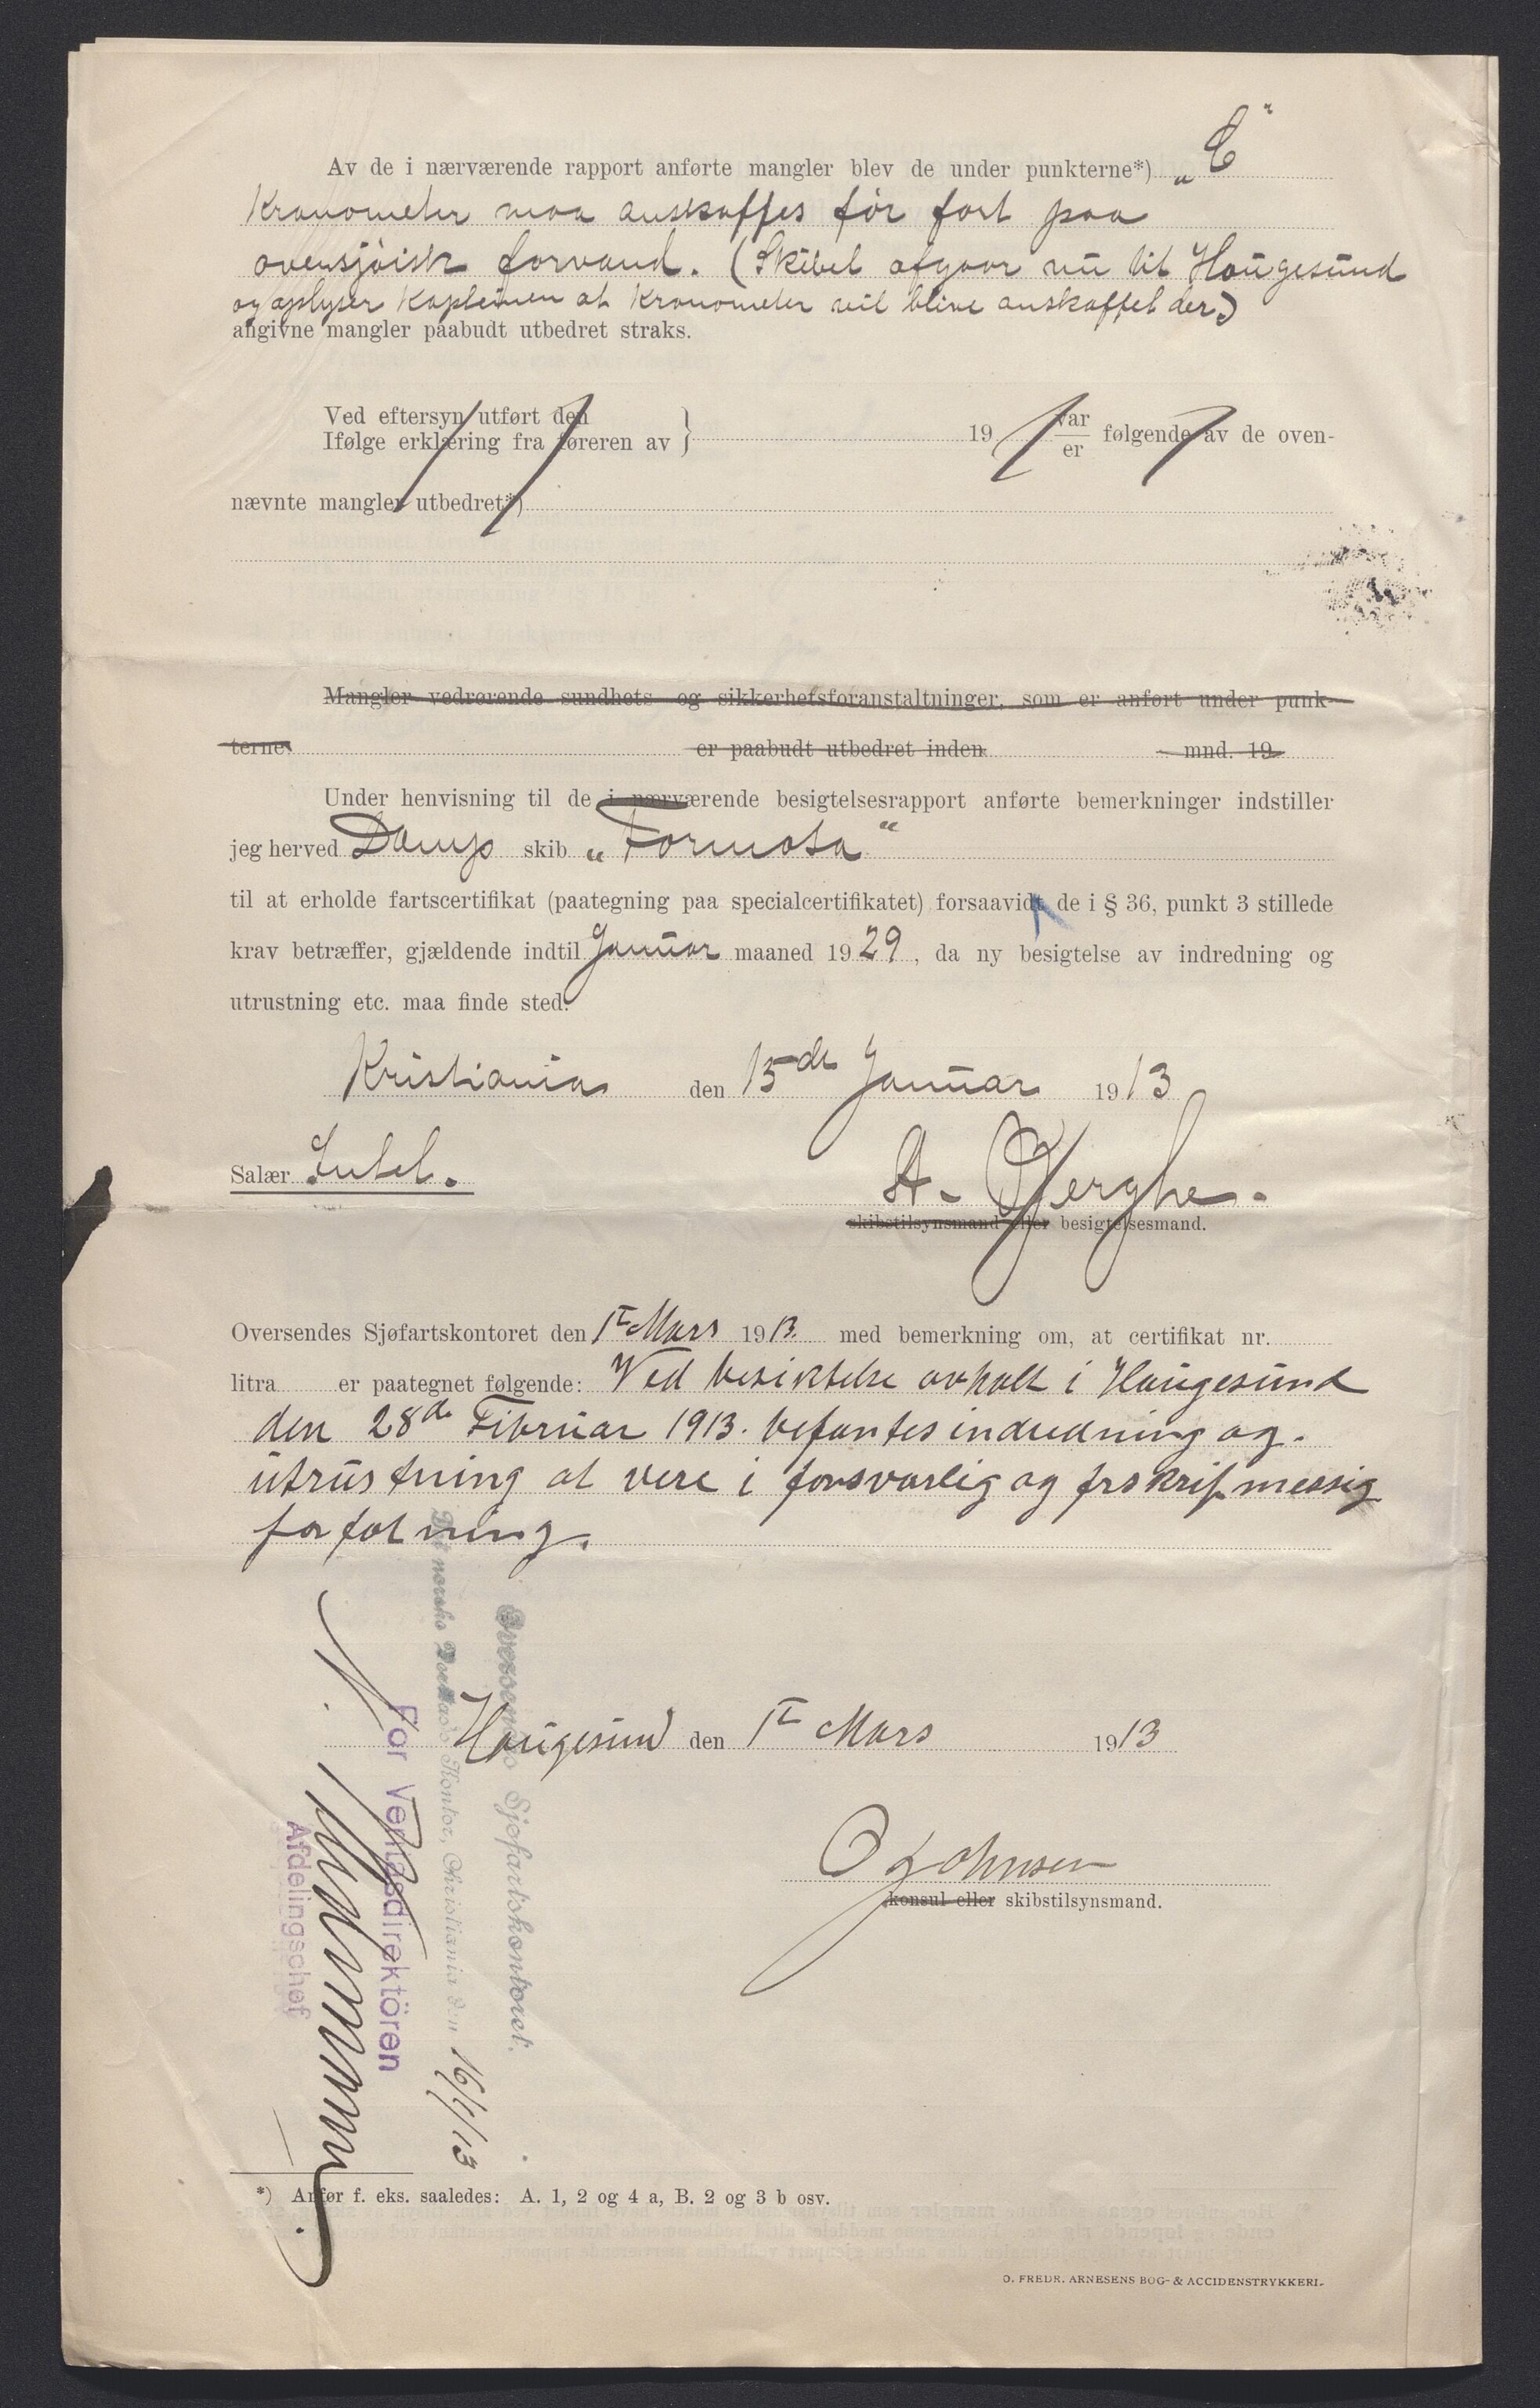 Av de i nærværende rapport anførte mangler blev de under punkterne*) „C"
Kronometer maa anskaffes før fart paa
oversjøisk farvand. (Skibet afgaar nu til Haugesund
og oplyser Kapteinen at Kronometer vil blive anskaffet der)
angivne mangler paabudt utbedret straks.
Ved eftersyn utført den
Ifølge erklæring fra føreren av } 19 var/er følgende av de oven-
nævnte mangler utbedret*)
Mangler vedrørende sundhets- og sikkerhetsforanstaltninger, som er anført under punk-
terne er paabudt utbedret inden mnd. 19
Under henvisning til de i nærværende besigtelsesrapport anførte bemerkninger indstiller
jeg herved Damp skib „Formosa"
til at erholde fartscertifikat (paategning paa specialcertifikatet) forsaavidt de i § 36, punkt 3 stillede
krav betræffer, gjældende indtil Januar maaned 1929, da ny besigtelse av indredning og
utrustning etc. maa finde sted.
Kristiania den 15de Januar 1913
Salær Intet.
A. Bjerghe.
skibstilsynsmand eller besigtelsesmand.
Oversendes Sjøfartskontoret den 1te Mars 1913. med bemerkning om, at certifikat nr.
litra er paategnet følgende: Ved besiktelse avholt i Haugesund
den 28de Februar 1913. befantes indredning og.
utrustning at vere i forsvarlig og frskrifmessig
forfatning.
Haugesund den 1te Mars 1913
O Johnsen
konsul eller skibstilsynsmand.
Oversendes Sjøfartskontoret.
Det norske Veritas' Kontor, Christiania den 16/4/13
For Veritasdirektören
Afdelingschef
*) Anfør f. eks. saaledes: A. 1, 2 og 4 a, B. 2 og 3 b osv.
O. FREDR. ARNESENS BOG- & ACCIDENSTRYKKERI.